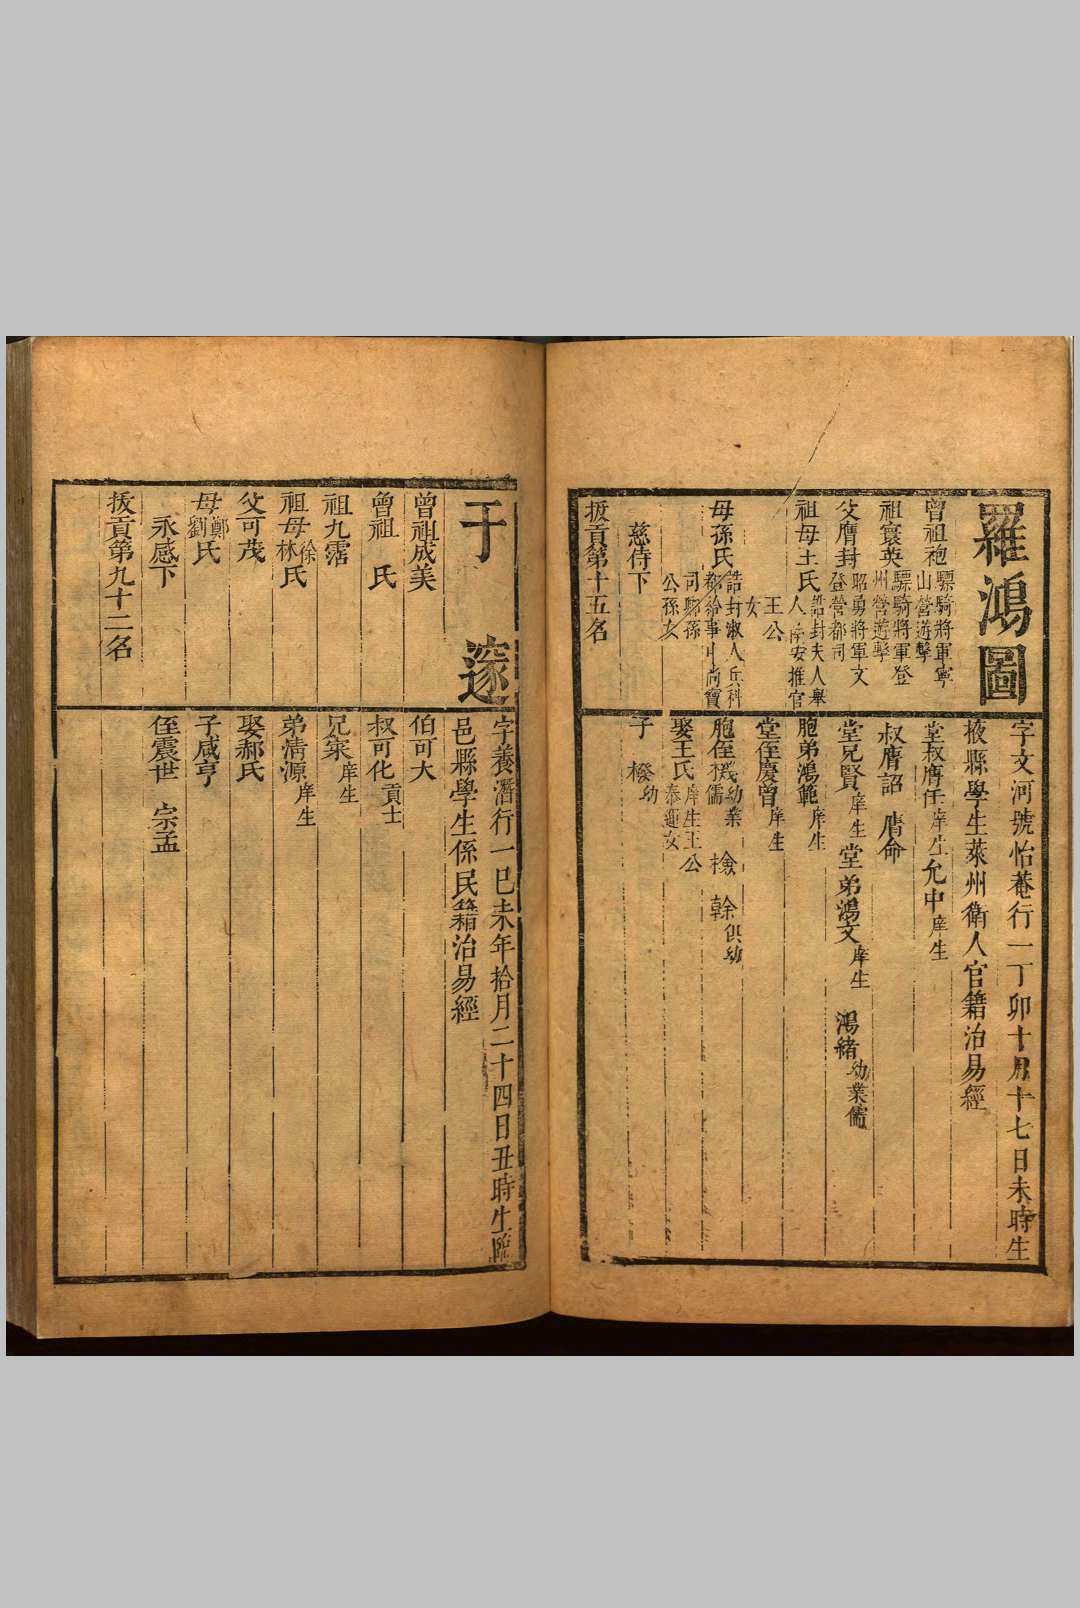 羅鴻圖
曾祖袍驃騎將軍寧山營遊擊
祖寰英驃騎將軍登州營遊擊
父膺封昭勇將軍文登營都司
祖母王氏誥封夫人舉人淮安推官王公女
母孫氏誥封淑人兵科都給事中尚寶司卿孫公孫女
慈侍下
拔貢第十五名
字文河號怡菴行一丁卯十月十七日未時生
掖縣學生萊州衛人官籍治易經
堂叔膺任庠生 允中庠生
叔膺詔 膺命
堂兄賢庠生 堂弟鴻文庠生 鴻緒幼業儒
胞弟鴻範庠生
堂侄慶曾庠生
胞侄機幼業儒 檢 榦俱幼
娶王氏庠生王公泰運女
子 橃幼
于 邃
曾祖成美
曾祖 氏
祖九霑
祖母徐林氏
父可茂
母鄭劉氏
永感下
拔貢第九十二名
字養潛行一己未年拾月二十四日丑時生臨
邑縣學生係民籍治易經
伯可大
叔可化貢士
兄家庠生
弟清源庠生
娶郝氏
子咸亨
侄震世 宗孟